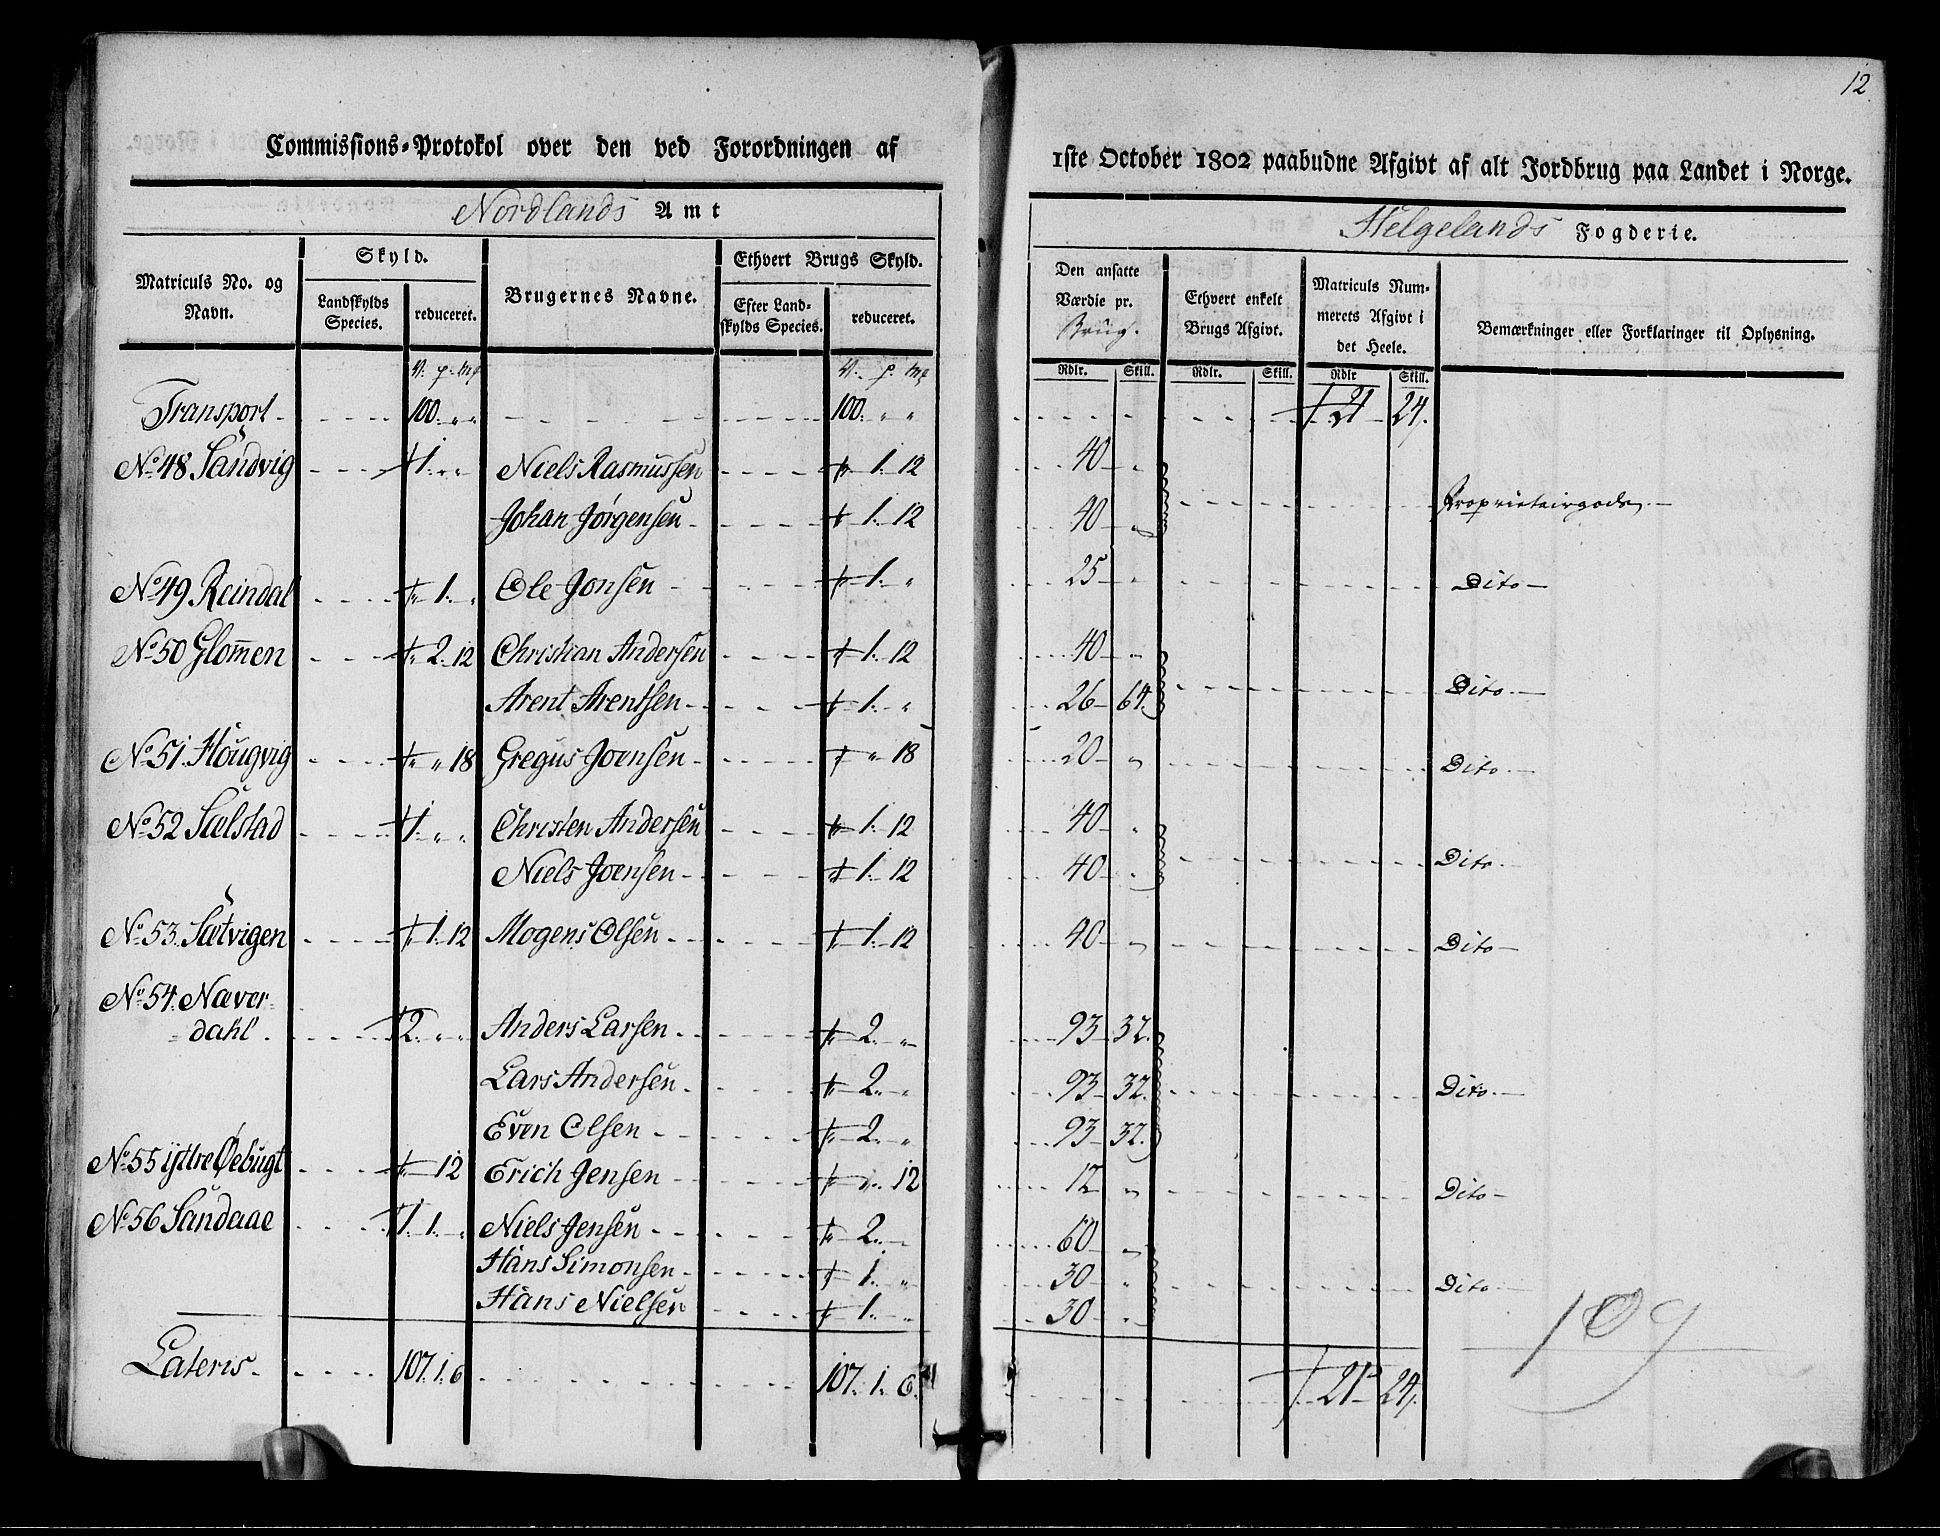 12
Commissions-Protokol over den ved Forordningen af
1ste October 1802 paabudne Afgivt af alt Jordbrug paa Landet i Norge.
Nordlands Amt
Helgelands Fogderie.
Matriculs No. og Navn.
Skyld.
Landskylds Species.
reduceret.
Brugernes Navne.
Ethvert Brugs Skyld.
Efter Landskylds Species.
reduceret.
Den ansatte Værdie pr. Brug.
Ethvert enkelt Brugs Afgivt.
Matriculs Nummerets Afgivt i det Heele.
Bemærkninger eller Forklaringer til Oplysning.
V. p. mk V. p. mk Rdlr. Skill. Rdlr. Skill. Rdlr Skill.
Transport 100. " " 100. " " 21 24.
No 48 Sandvig 1. " " Niels Rasmussen 1. 12 40 "
Johan Jørgensen 1. 12 40 " Proprietairgods
No 49 Reindal " 1. " Ole Jonsen 1. " 25 " Dito
No 50 Glom̅en " 2. 12 Christian Andersen 1. 12 40 "
Arent Arentsen 1. " 26 64. Dito
No 51 Hougvig " " 18 Gregus Joensen " 18 20 " Dito
No 52 Sælstad 1 " " Christen Andersen 1. 12 40 "
Niels Joensen 1. 12 40 " Dito
No 53. Sætvigen 1. 12 Mogens Olsen 1. 12 40 " Dito
No 54. Næver-
dahl. 2. " " Anders Larsen 2. " 93 32.
Lars Andersen 2. " 93 32. Dito
Even Olsen 2. " 93 32.
No 55 ÿttre Øebugt 12 Erich Jensen " 12 12 " Dito
No 56 Sandaae 1. 1. " Niels Jensen 2. 60 "
Hans Simonsen 1. " 30 " Dito
Hans Nielsen 1. " 30 "
Lateris 107. 1. 6 107. 1. 6. 21 24.
109